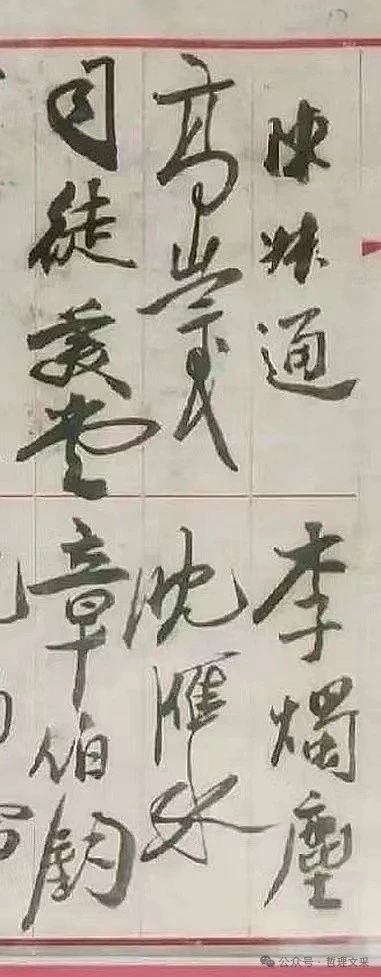 陳叔通
李燭塵
高崇民
沈雁冰
司徒美堂
章伯鈞
公众号 · 哲理文采